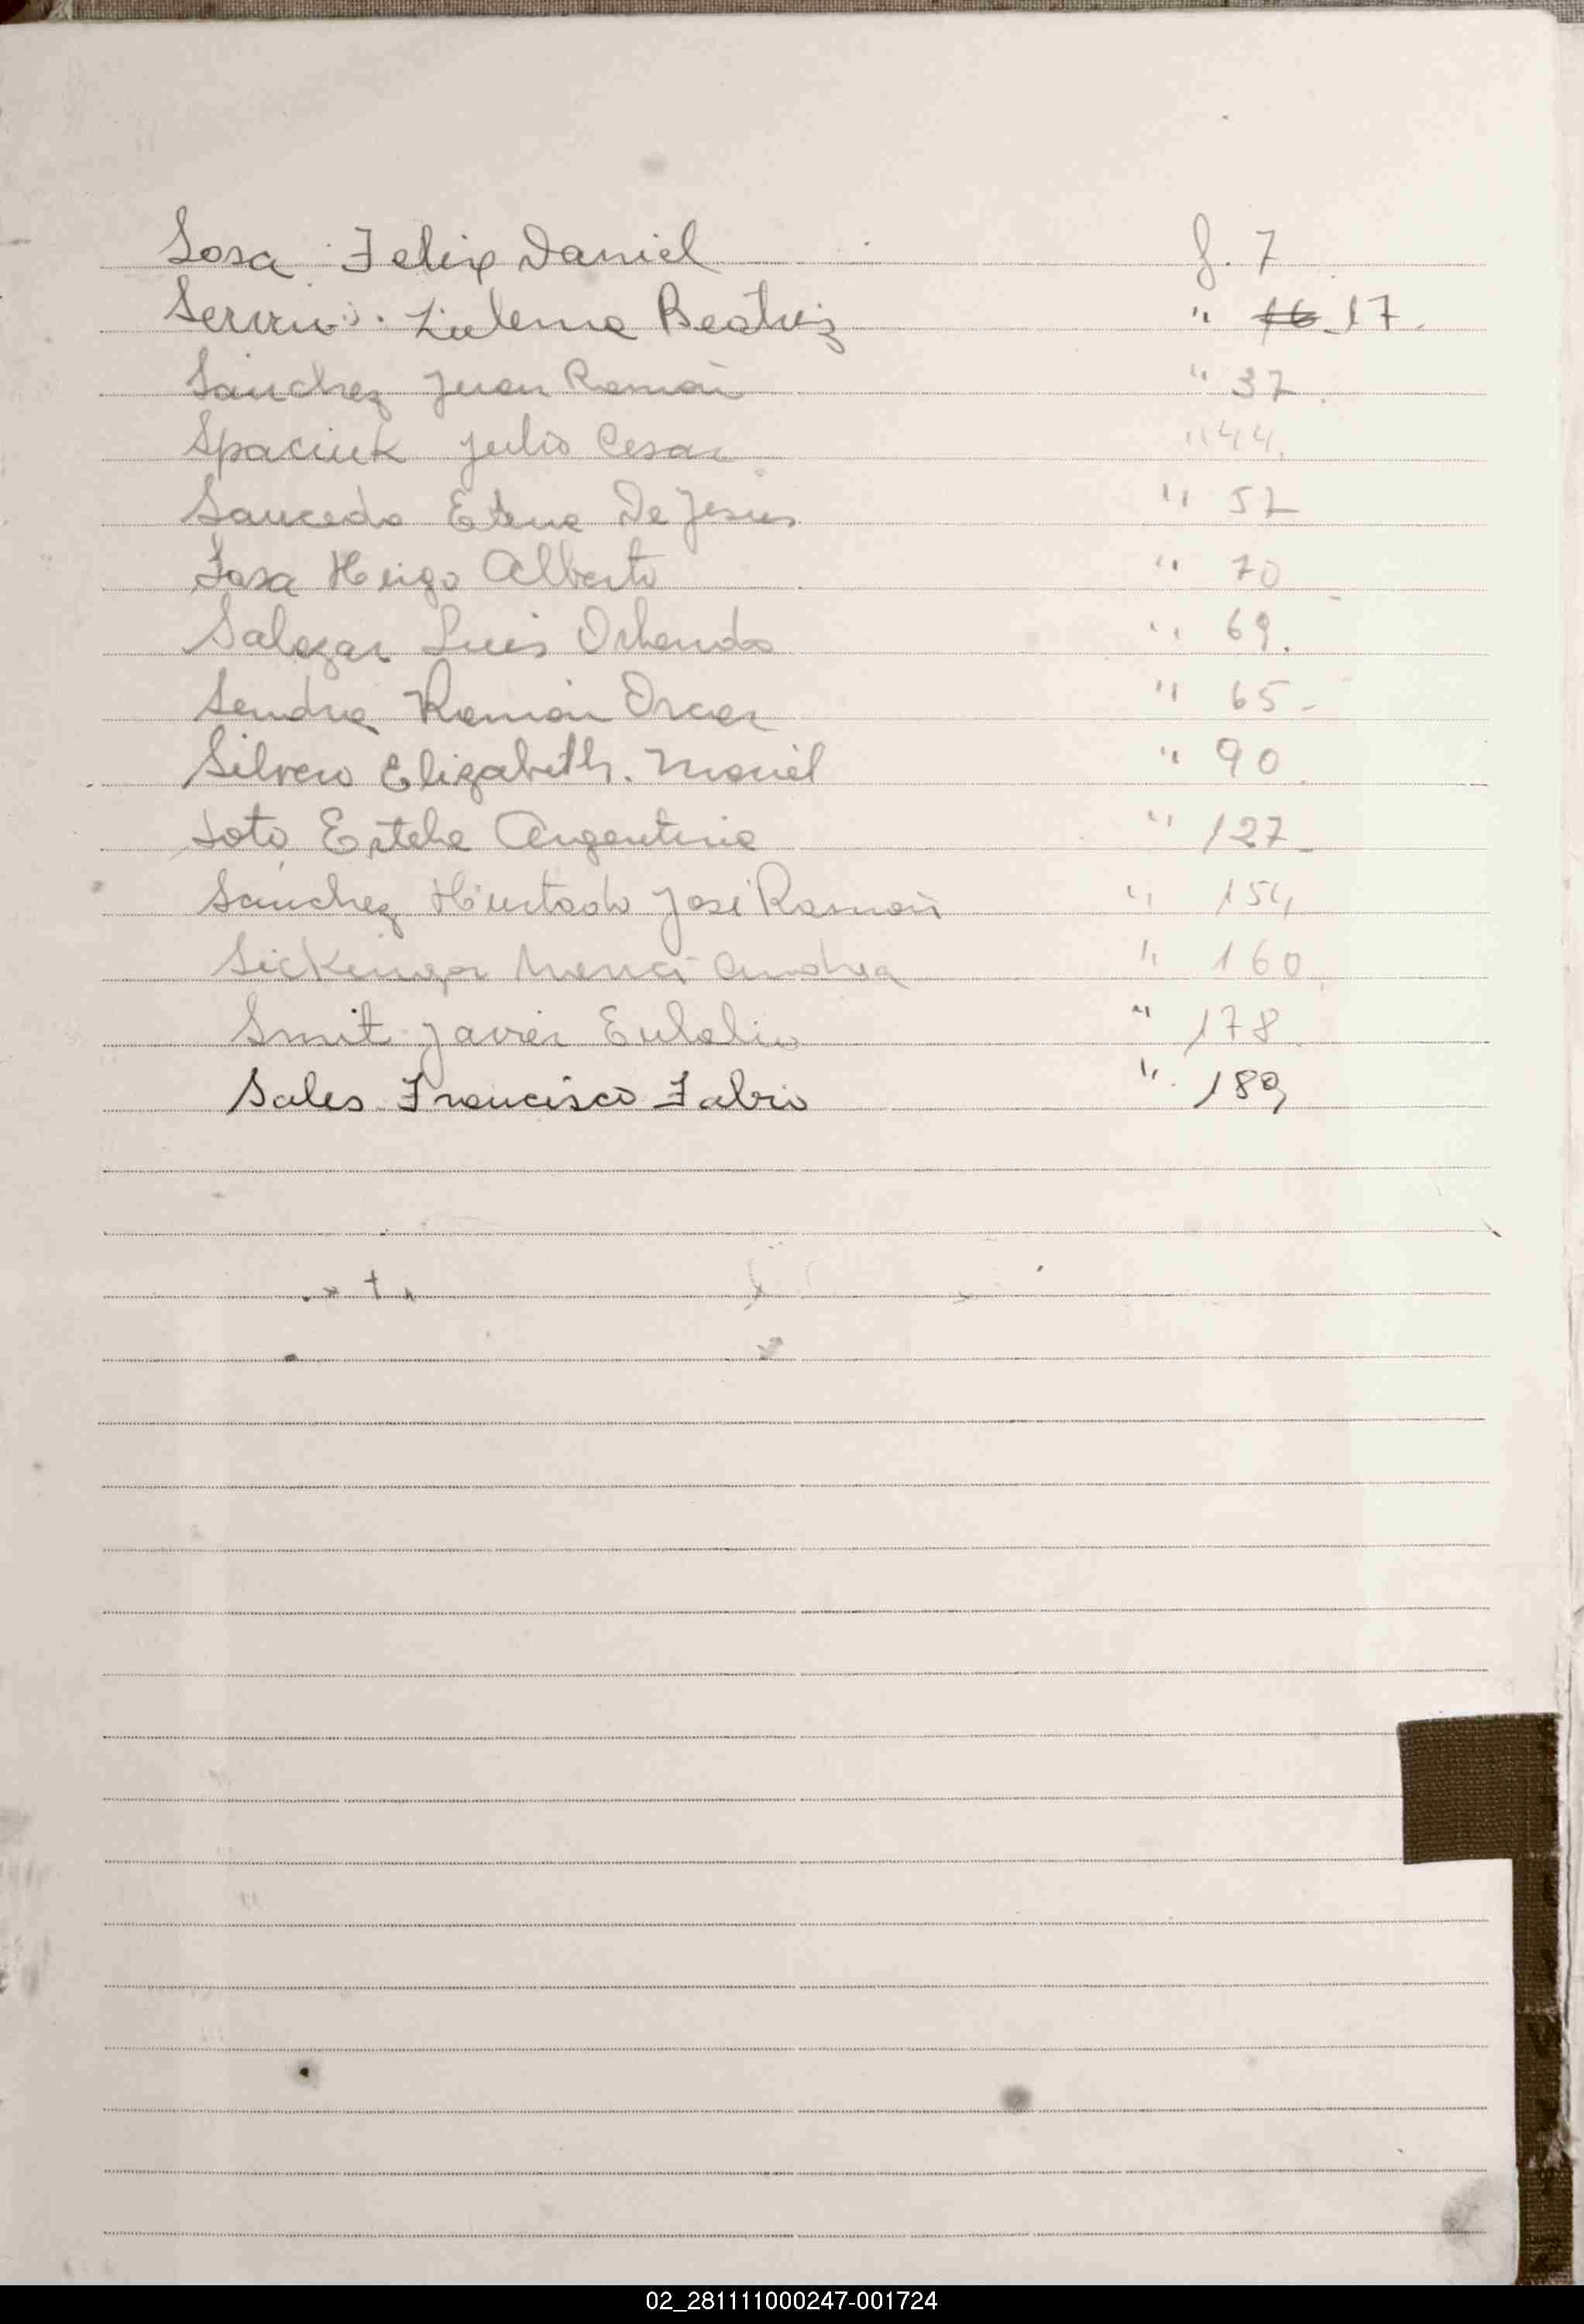 Sosa Felix Daniel f. 7
Servin Zulema Beatriz " 16 17.
Sanchez Juan Ramón " 37.
Spaciuk Julio Cesar " 44.
Saucedo Elena De Jesús " 52
Sosa Hugo Alberto " 70
Salazar Luis Orlando " 69.
Sendra Ramón Oscar " 65-
Silvero Elizabeth. Mariel " 90.
Soto Estela Argentina " 127-
Sanchez Hurtado José Ramón " 154
Sickenger Andrea " 160
Smit Javier Eulalio " 178.
Sales Francisco Fabio " 189
02_281111000247-001724